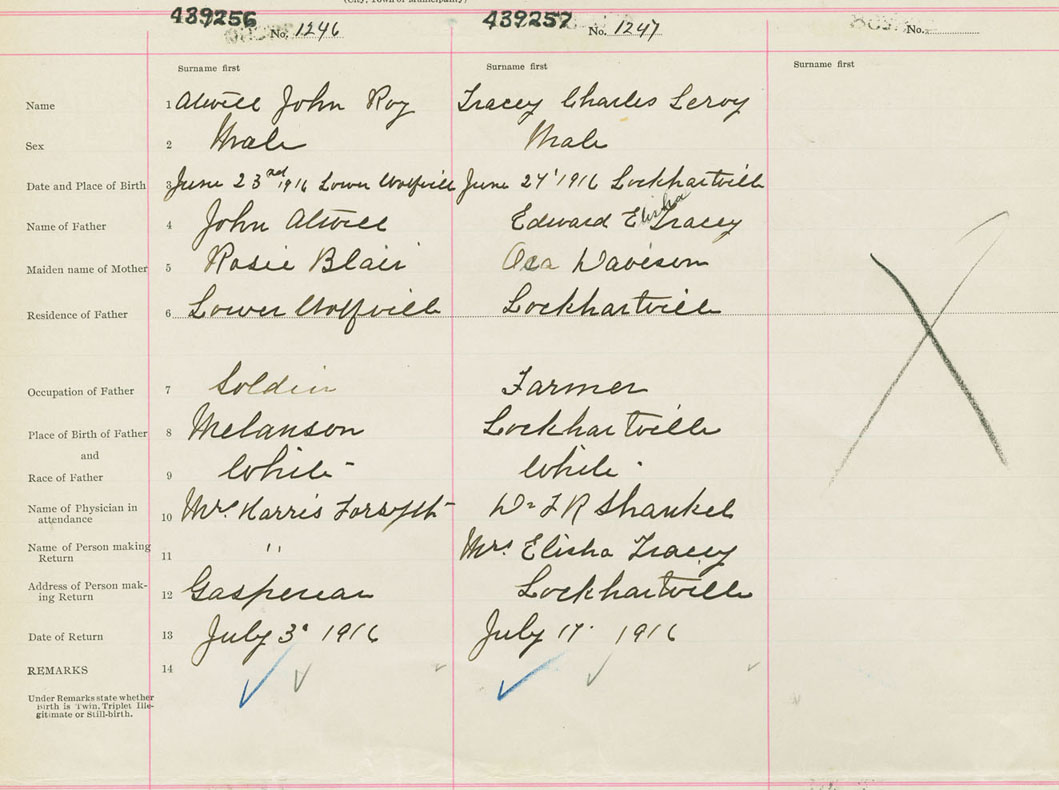 (City, Town or Municipality)
439256 439257
No. 1246 No. 1247 No.
Surname first Surname first Surname first
Name 1 Atwell John Roy Tracey Charles Leroy
Sex 2 Male Male
Date and Place of Birth 3 June 23rd 1916 Lower Wolfville June 27' 1916 Lockhartville
Name of Father 4 John Atwell Edward Elisha Tracey
Maiden name of Mother 5 Rosie Blair Davison
Residence of Father 6 Lower Wolfville Lockhartville
Occupation of Father 7 Soldier Farmer
Place of Birth of Father 8 Melanson Lockhartville
and
Race of Father 9 White White
Name of Physician in
attendance 10 Mrs. Harris Forsyth Dr F R Shankel
Name of Person making
Return 11 " Mrs Elisha Tracey
Address of Person mak-
ing Return 12 Gaspereau Lockhartville
Date of Return 13 July 3 1916 July 17 1916
REMARKS 14
Under Remarks state whether
birth is Twin, Triplet Ille-
gitimate or Still-birth.